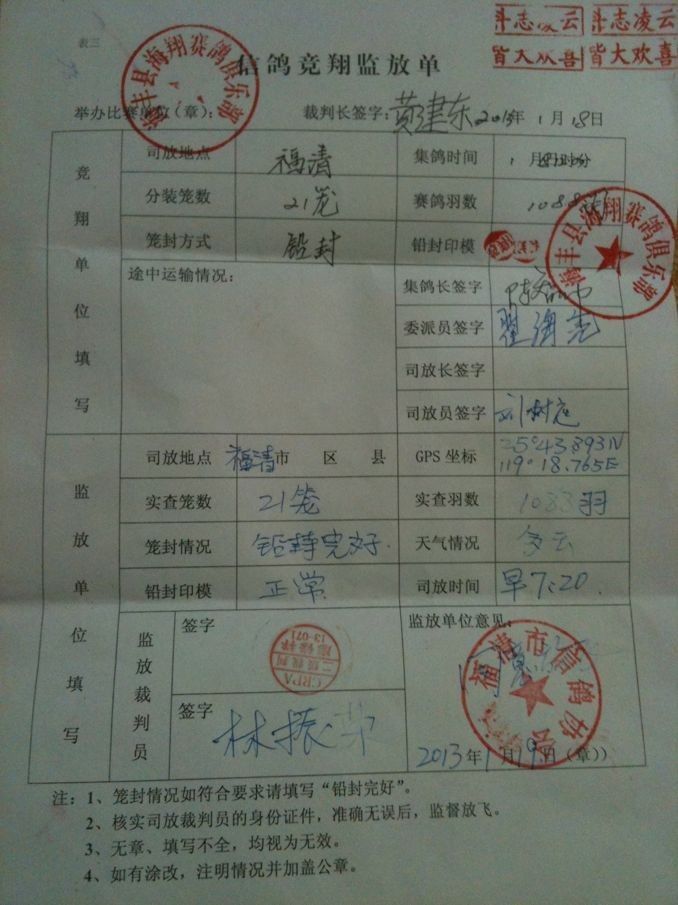 斗志凌云 斗志凌云
皆大欢喜 皆大欢喜
表三
信鸽竞翔监放单
海丰县海翔赛鸽俱乐部
举办比赛单位（章）： 裁判长签字：黄建东 2013年1月18日
竞翔单位填写
司放地点 福清 集鸽时间 1月
分装笼数 21笼 赛鸽羽数 1083羽
笼封方式 铅封 铅封印模
海丰县海翔赛鸽俱乐部
途中运输情况： 集鸽长签字
委派员签字
司放长签字
司放员签字 刘树庭
监放单位填写
司放地点 福清市 区 县 GPS 坐标 25°43.893N
119°18.765E
实查笼数 21笼 实查羽数 1083羽
笼封情况 铅封完好. 天气情况 多云
铅封印模 正常 司放时间 早7:20
监放裁判员
签字 监放单位意见：
CRPA
二级裁判
13-071
同意
福清市信鸽协会
签字 林振荣
2013年1月19日（章））
注：1、笼封情况如符合要求请填写“铅封完好”。
2、核实司放裁判员的身份证件，准确无误后，监督放飞。
3、无章、填写不全，均视为无效。
4、如有涂改，注明情况并加盖公章。